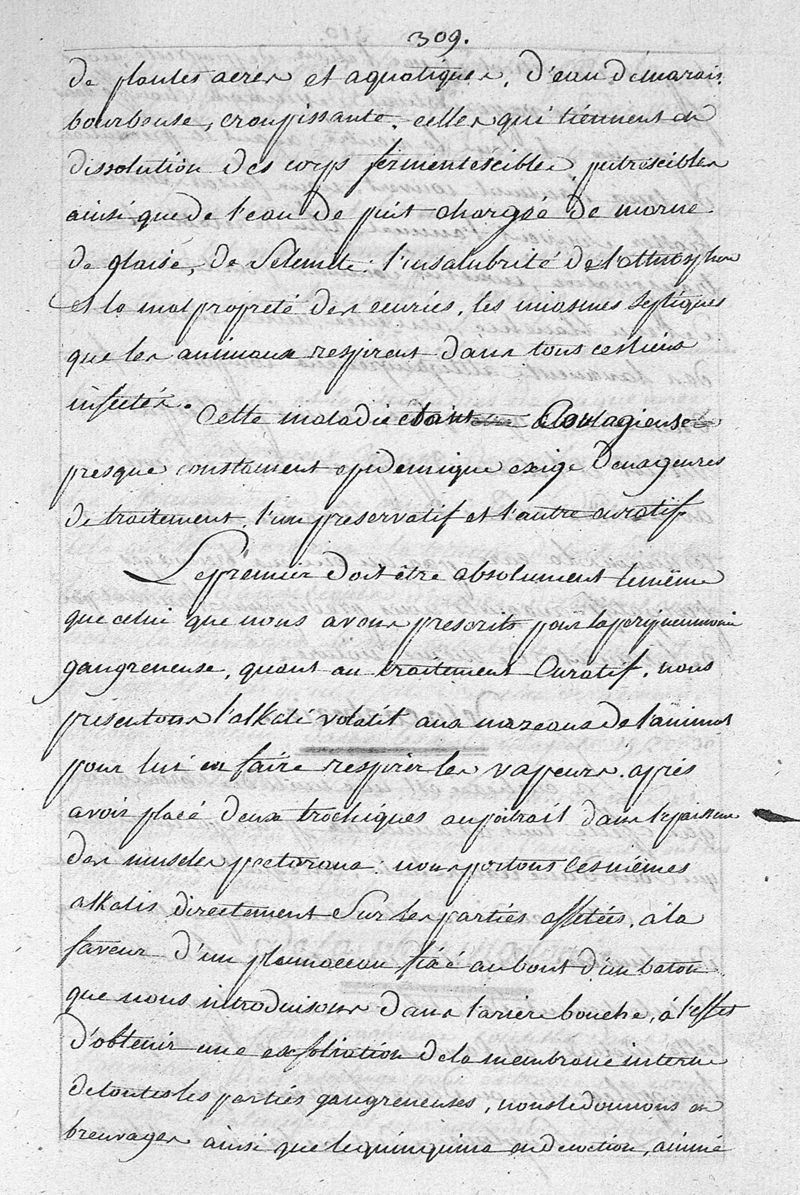 309.
de plantes acres et aquatiques, d'eau de marais
bourbeuse, croupissante, celles qui tiennent en
dissolution des corps fermentescibles putrescibles
ainsi que de l'eau de puit chargée de marne
de glaise, de Selenite: l'insalubrité de l'atmosphere
et la malpropreté des ecuries, les miasmes septiques
que les animaux respirent dans tous ces lieux
infectés. Cette maladie etant Contagieuse
presque constament epidemique exige deux genres
de traitement, l'un preservatif et l'autre curatif.
Le premier doit être absolument le même
que celui que nous avons prescrits pour la peripneumonie
gangreneuse, quant au traitement Curatif, nous
présentons l'alkali volatil aux nazeaux de l'animal
pour lui en faire respirer les vapeurs. après
avoir placé deux trochiques au poitrail dans l'epaisseur
des muscles pectoraux: nous portons ces mêmes
alkalis directement Sur les parties affetées, à la
faveur d'un plumaceau fixé au bout d'un baton
que nous introduisons dans l'ariere bouche, à l'effet
d'obtenir une exfoliation de la membrane interne
de toutes les parties gangreneuses, nous le donnons en
breuvages ainsi que le quinquina en decoction, animé